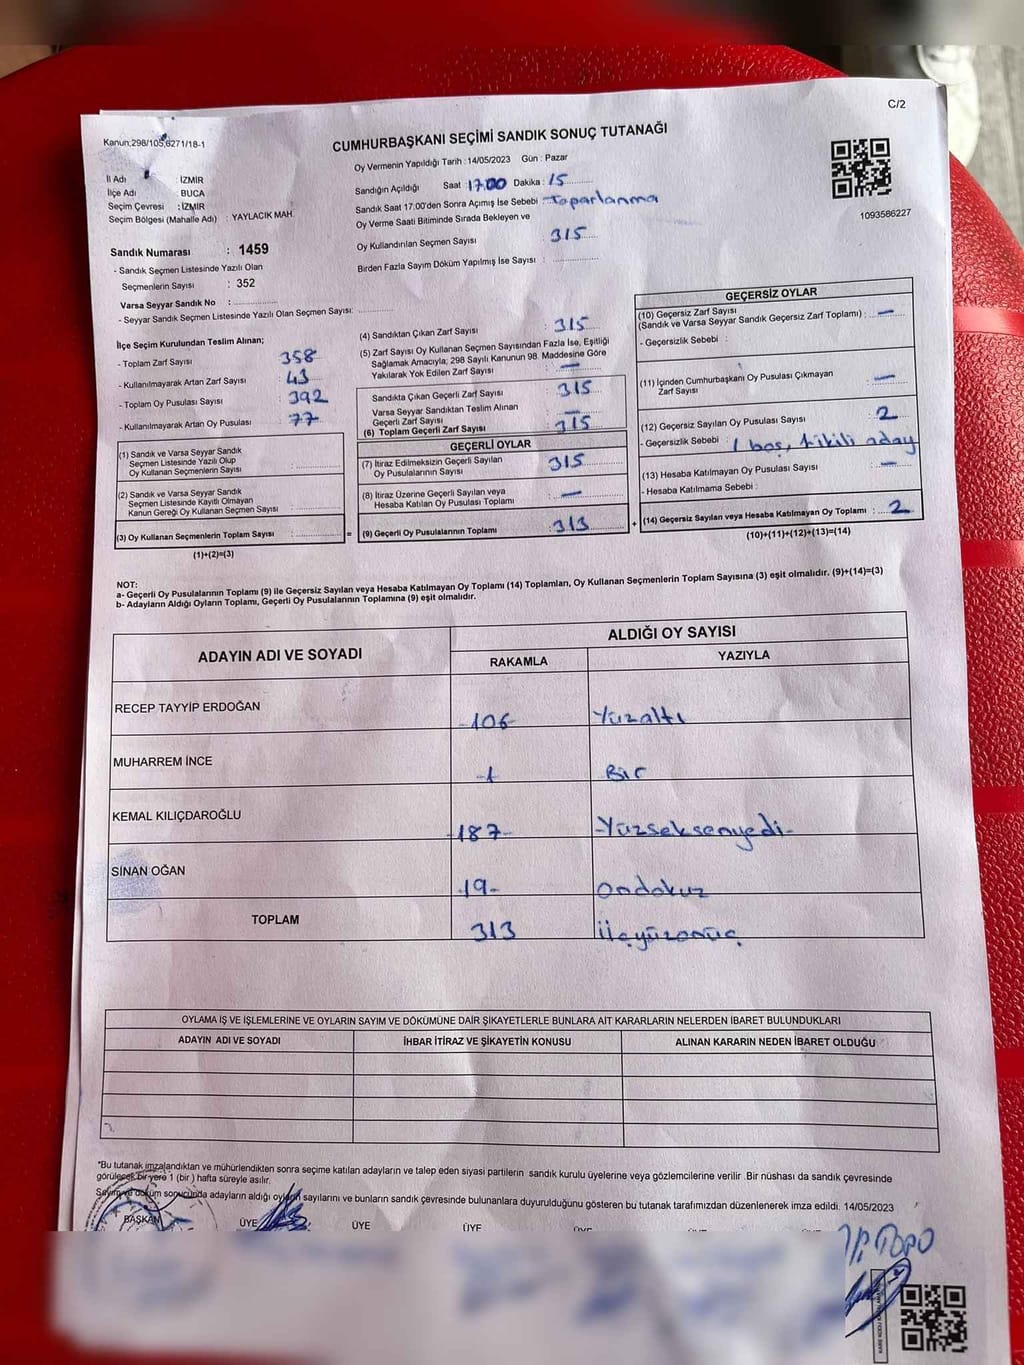 C/2
Kanun:298/105,6271/18-1
CUMHURBAŞKANI SEÇİMİ SANDIK SONUÇ TUTANAĞI
Oy Vermenin Yapıldığı Tarih : 14/05/2023 Gün : Pazar
İl Adı : İZMİR
İlçe Adı : BUCA
Seçim Çevresi : İZMİR
Seçim Bölgesi (Mahalle Adı) : YAYLACIK MAH.
Sandığın Açıldığı Saat : 17:00 Dakika : 15
Sandık Saat 17.00'den Sonra Açımış İse Sebebi : Toparlanma
Oy Verme Saati Bitiminde Sırada Bekleyen ve
Oy Kullandırılan Seçmen Sayısı 315
Birden Fazla Sayım Döküm Yapılmış İse Sayısı :
1093586227
Sandık Numarası : 1459
- Sandık Seçmen Listesinde Yazılı Olan
Seçmenlerin Sayısı : 352
Varsa Seyyar Sandık No :
- Seyyar Sandık Seçmen Listesinde Yazılı Olan Seçmen Sayısı:
İlçe Seçim Kurulundan Teslim Alınan;
- Toplam Zarf Sayısı 358
- Kullanılmayarak Artan Zarf Sayısı 43
- Toplam Oy Pusulası Sayısı 392
- Kullanılmayarak Artan Oy Pusulası 77
(1) Sandık ve Varsa Seyyar Sandık
Seçmen Listesinde Yazılı Olup
Oy Kullanan Seçmenlerin Sayısı :
(2) Sandık ve Varsa Seyyar Sandık
Seçmen Listesinde Kayıtlı Olmayan
Kanun Gereği Oy Kullanan Seçmen Sayısı :
(3) Oy Kullanan Seçmenlerin Toplam Sayısı :
(1)+(2)=(3)
(4) Sandıktan Çıkan Zarf Sayısı : 315
(5) Zarf Sayısı Oy Kullanan Seçmen Sayısından Fazla İse, Eşitliği
Sağlamak Amacıyla; 298 Sayılı Kanunun 98. Maddesine Göre
Yakılarak Yok Edilen Zarf Sayısı : —
Sandıkta Çıkan Geçerli Zarf Sayısı : 315
Varsa Seyyar Sandıktan Teslim Alınan
Geçerli Zarf Sayısı : —
(6) Toplam Geçerli Zarf Sayısı : 315
GEÇERLİ OYLAR
(7) İtiraz Edilmeksizin Geçerli Sayılan
Oy Pusulalarının Sayısı 315
(8) İtiraz Üzerine Geçerli Sayılan veya
Hesaba Katılan Oy Pusulası Toplamı : —
= (9) Geçerli Oy Pusulalarının Toplamı : 313
GEÇERSİZ OYLAR
(10) Geçersiz Zarf Sayısı
(Sandık ve Varsa Seyyar Sandık Geçersiz Zarf Toplamı) : —
- Geçersizlik Sebebi :
(11) İçinden Cumhurbaşkanı Oy Pusulası Çıkmayan
Zarf Sayısı : —
(12) Geçersiz Sayılan Oy Pusulası Sayısı : 2
- Geçersizlik Sebebi : 1 boş, 1 ikili aday
(13) Hesaba Katılmayan Oy Pusulası Sayısı : —
- Hesaba Katılmama Sebebi :
+ (14) Geçersiz Sayılan veya Hesaba Katılmayan Oy Toplamı : 2
(10)+(11)+(12)+(13)=(14)
NOT:
a- Geçerli Oy Pusulalarının Toplamı (9) ile Geçersiz Sayılan veya Hesaba Katılmayan Oy Toplamı (14) Toplamları, Oy Kullanan Seçmenlerin Toplam Sayısına (3) eşit olmalıdır. (9)+(14)=(3)
b- Adayların Aldığı Oyların Toplamı, Geçerli Oy Pusulalarının Toplamına (9) eşit olmalıdır.
ADAYIN ADI VE SOYADI
ALDIĞI OY SAYISI
RAKAMLA YAZIYLA
RECEP TAYYİP ERDOĞAN -106- Yüzaltı
MUHARREM İNCE -1 Bir
KEMAL KILIÇDAROĞLU -187- -Yüzseksenyedi-
SİNAN OĞAN -19- ondokuz
TOPLAM 313 üçyüzonüç
OYLAMA İŞ VE İŞLEMLERİNE VE OYLARIN SAYIM VE DÖKÜMÜNE DAİR ŞİKAYETLERLE BUNLARA AİT KARARLARIN NELERDEN İBARET BULUNDUKLARI
ADAYIN ADI VE SOYADI İHBAR İTİRAZ VE ŞİKAYETİN KONUSU ALINAN KARARIN NEDEN İBARET OLDUĞU
*Bu tutanak imzalandıktan ve mühürlendikten sonra seçime katılan adayların ve talep eden siyasi partilerin sandık kurulu üyelerine veya gözlemcilerine verilir. Bir nüshası da sandık çevresinde
görülecek bir yere 1 (bir) hafta süreyle asılır.
Sayım ve döküm sonucunda adayların aldığı oyların sayılarını ve bunların sandık çevresinde bulunanlara duyurulduğunu gösteren bu tutanak tarafımızdan düzenlenerek imza edildi. 14/05/2023
BAŞKAN ÜYE ÜYE ÜYE